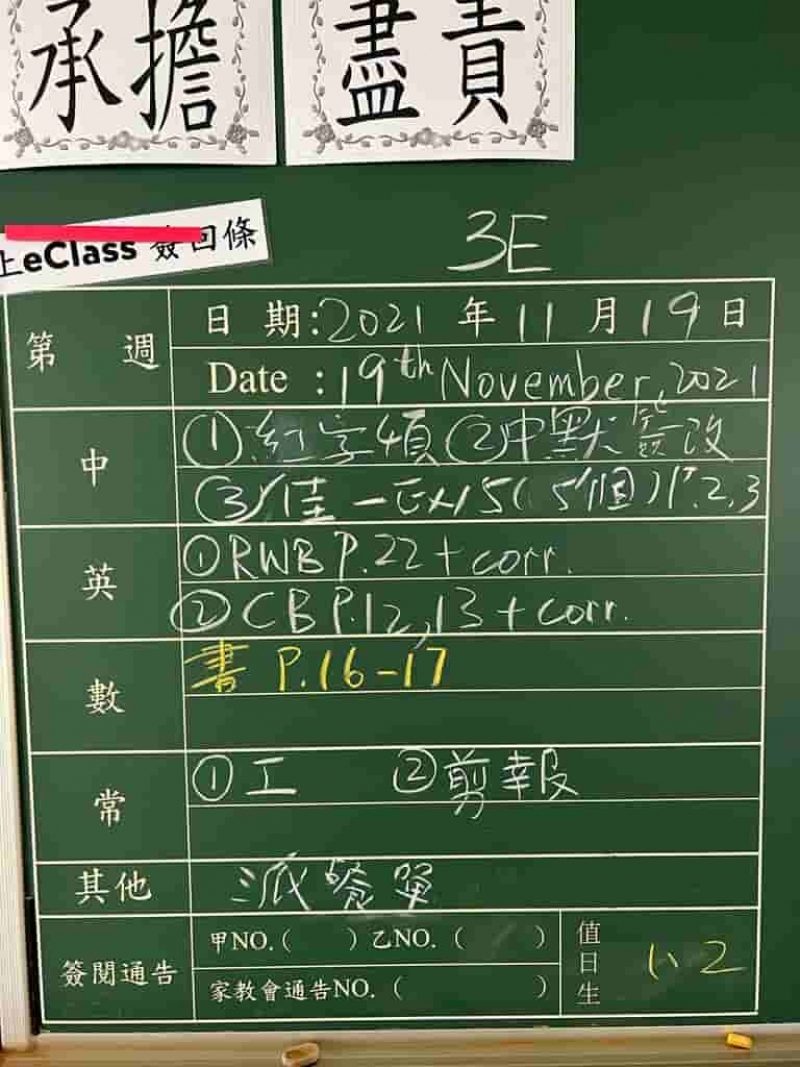 承擔 盡責
上eClass 簽回條
3E
第 週
日 期:2021 年 11 月 19 日
Date :19th November, 2021
中
① 紅字頻 ②中默簽改
③ 佳一Ex15(5個)P.1,2,3
英
① RWB P.22 + corr.
② CB P.12,13 + corr.
數
書 P.16-17
常
① 工 ② 剪報
其他
派餐單
簽閱通告
甲NO.( ) 乙NO. ( )
家教會通告NO. ( )
值日生
2